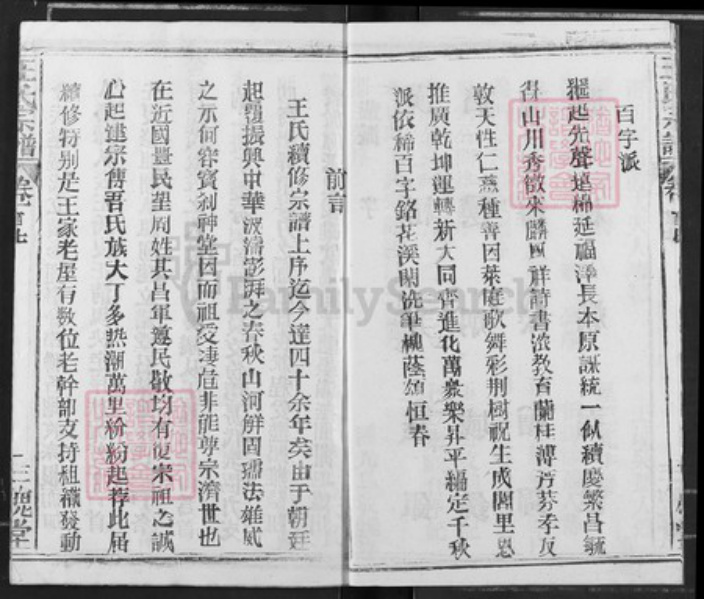 百字派
繩起先聲遠綿延福澤長本原誠統一似續慶繁昌毓
得山川秀徵來麟鳳祥詩書滋教育蘭桂溥芬芳孝友
敦天性仁慈種善因萊庭歌舞彩荆樹祝生成閭里恩
推廣乾坤運轉新大同齊進化萬衆樂昇平編定千秋
派依稀百字銘花溪閑洗筆槐蔭頌恒春
前言
王氏續修宗譜上序迄今達四十余年矣由于朝廷
起覆振興中華波濤澎湃之春秋山河鮮固孺法雄威
之示何容賓刹神堂因而祖受淒危非能尊宗濟世也
在近國豐民望周姓其昌軍邀民敬均有復宋祖之誠
心起建宗傳吾氏族大丁多熱潮萬里紛紛起荐此届
續修特別是王家老屋有数位老幹部支持組織發動
王氏宗譜
卷首
三槐堂
FamilySearch